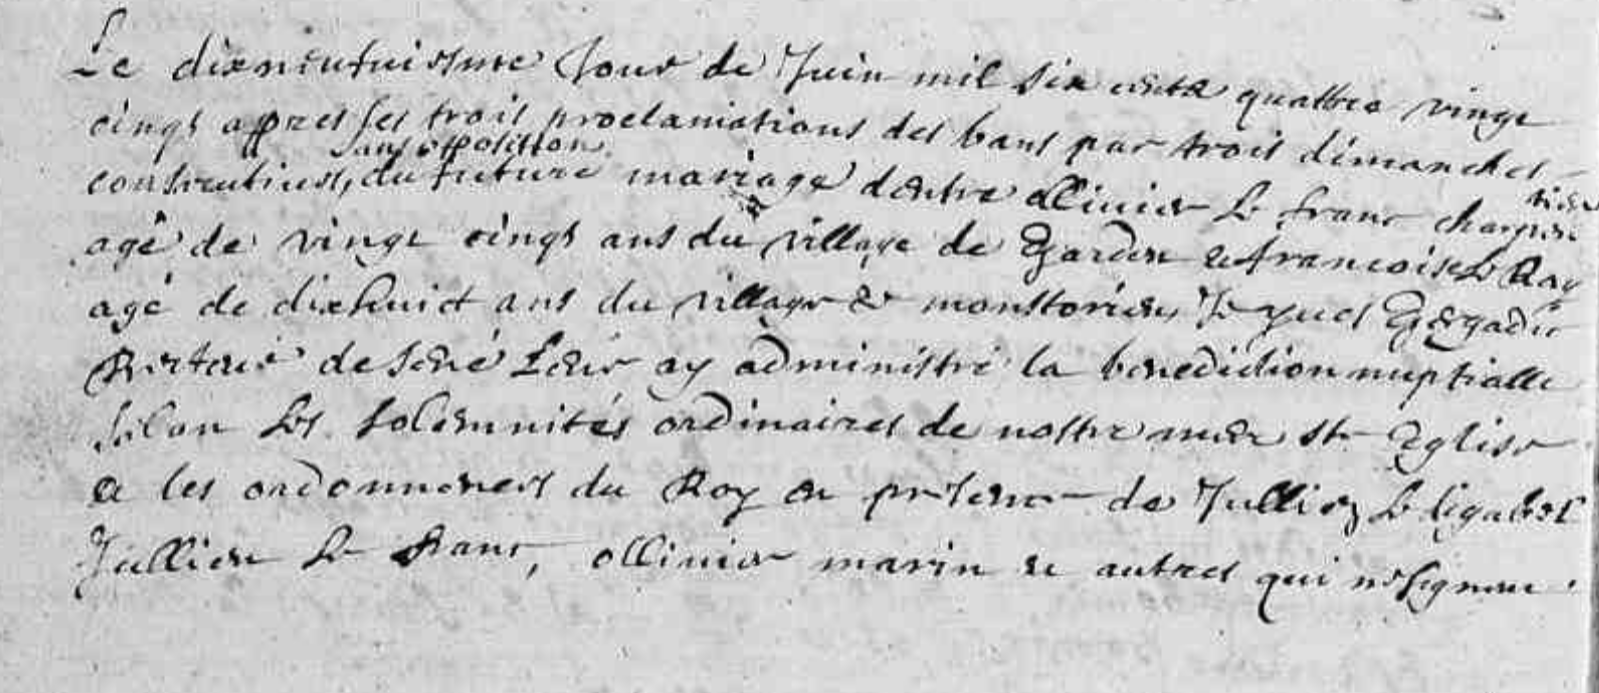 Le dixneufuiesme Jour de Juin mil six cents quattre vingt
cinqs appres les trois proclamations des bans par trois dimanches
sans opposition
consecutiues, du future mariage dentre ollinier Le franc charpentier
agé de vingt cinqs ans du village de & francoise Le Ray
agé de dixhuict ans du village de
Recteur de Sené Leur ay administré la benediction nuptialle
selon les solemnités ordinaires de nostre mere ste Eglise
& les ordonnences du Roy en presence de Jullien
Jullien Le franc, ollinier marin & autres qui ne signent.